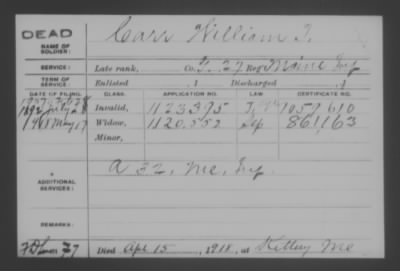 DEAD
NAME OF SOLDIER: Carr William T.
SERVICE: Late rank, Co. G. 27 Reg't Maine Inf
TERM OF SERVICE Enlisted , 1 Discharged , 1
DATE OF FILING. CLASS. APPLICATION NO. LAW. CERTIFICATE NO.
1892 July 28 Invalid, 1123395 1059610
1918 May 17 Widow, 1120,552 861,163
Minor,
ADDITIONAL SERVICES: A 32, Me, Inf.
REMARKS:
Died Apr 15, 1918, at Kittery Me